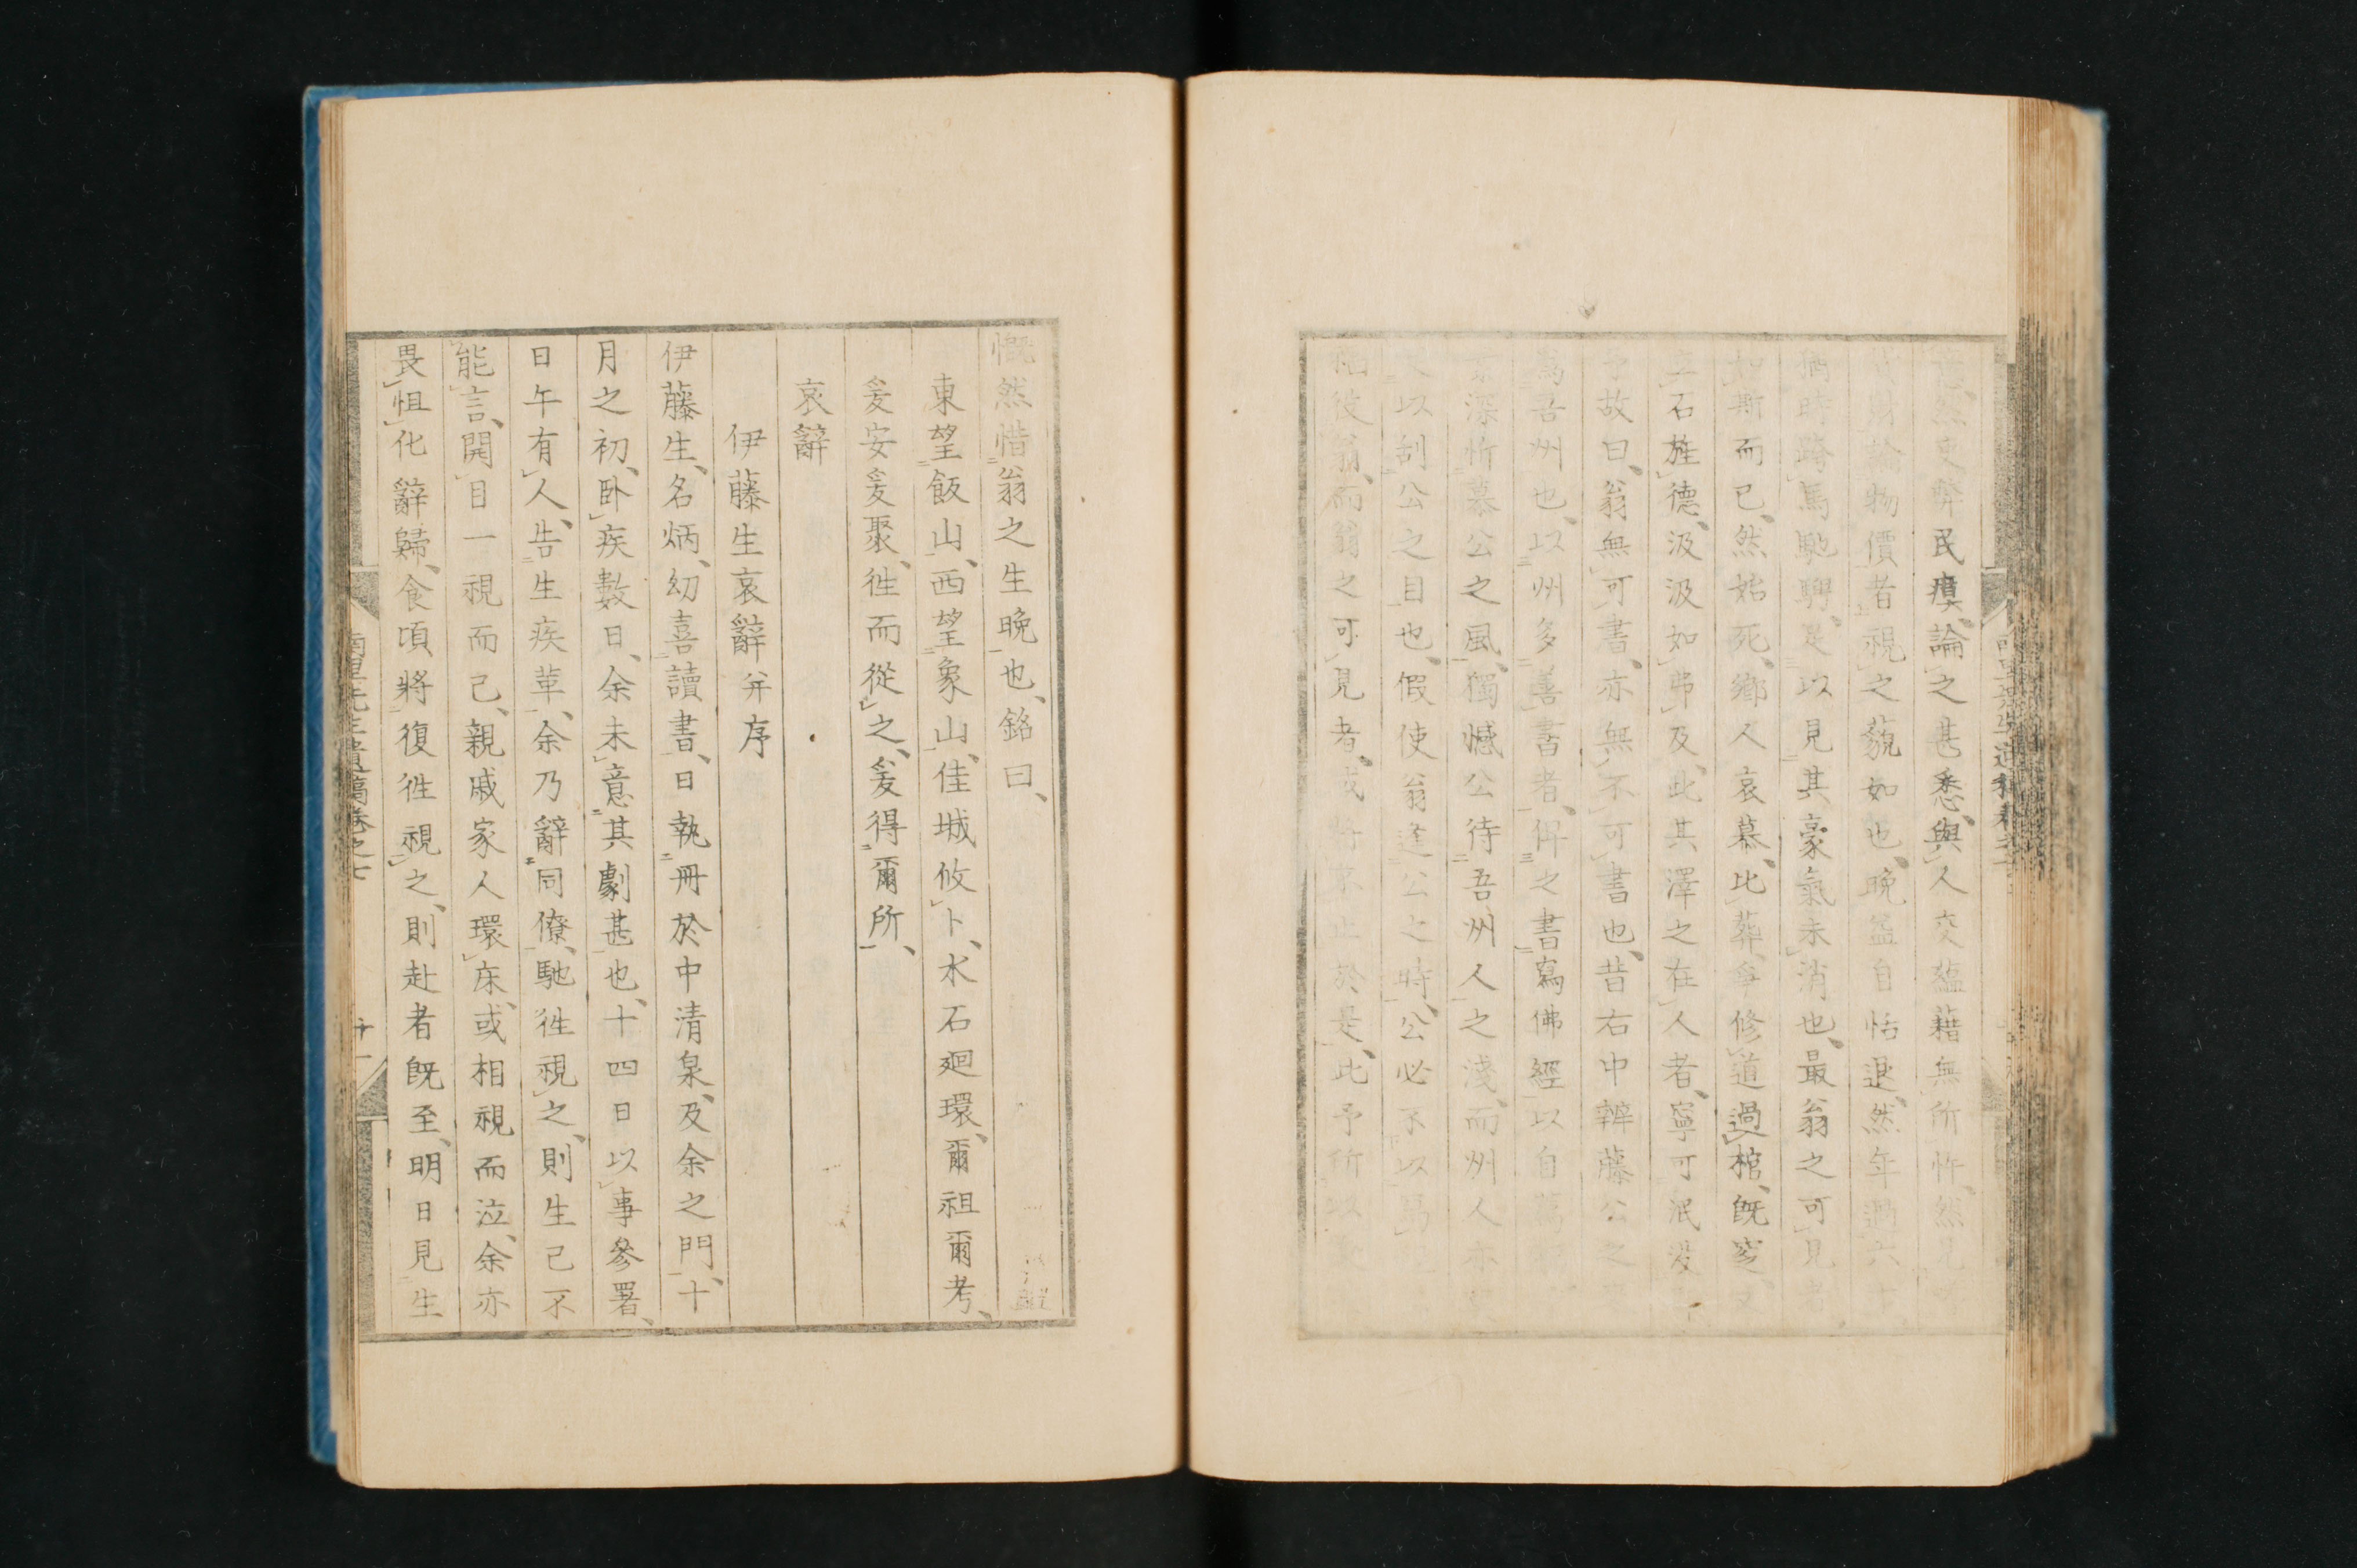 民瘼、論之甚悉、與人交蘊藉無所忤、然
財論物價者、視之藐如也、晚益自恬退、然年過六十
猶時跨馬馳騁、是以見其豪氣未消也、最翁之可見者
如斯而已、然始死、鄉人哀慕、比葬爭修道過棺、既窆、
立石旌德、汲汲如弗及、此其澤之在人者、寧可泯沒
予故曰、翁無可書、亦無不可書也、昔右中辨藤公之
為吾州也、以州多善書者、俾之書寫佛經以自
深忻慕公之風、獨憾公待吾州人之淺、而州人亦
以刮公之目也、假使翁逢公之時、公必不以為
彼翁、而翁之可見者、或將不止於是、此予所以
慨然惜翁之生晚也、銘曰、
東望飯山、西望象山、佳城攸卜、水石廻環、爾祖爾考、
爰安爰聚、徃而從之、爰得爾所、
哀辭
伊藤生哀辭并序
伊藤生、名炳、幼喜讀書、日執冊於中清泉、及余之門、十
月之初、卧疾數日、余未意其劇甚也、十四日以事參署、
日午有人、告生疾革、余乃辭同僚、馳徃視之、則生已不
能言、開目一視而已、親戚家人環床、或相視而泣、余亦
畏怛化辭歸、食頃將復徃視之、則赴者既至、明日見生
南里先生遺稿卷之七
十一